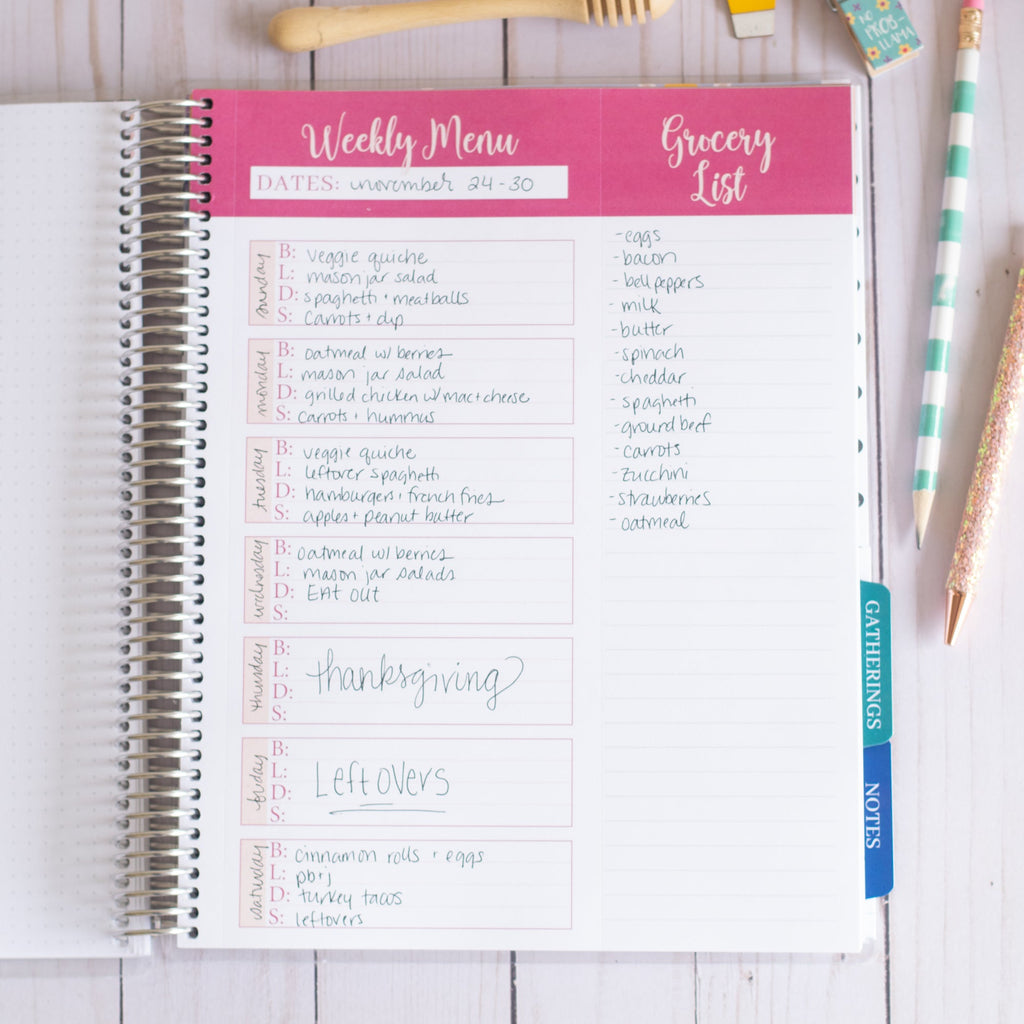 NO
PROB-
LLAMA
Weekly Menu
DATES: november 24-30
Grocery
List
sunday
B: veggie quiche
L: mason jar salad
D: spaghetti + meatballs
S: carrots + dip
monday
B: oatmeal w/ berries
L: mason jar salad
D: grilled chicken w/ mac + cheese
S: carrots + hummus
tuesday
B: veggie quiche
L: leftover spaghetti
D: hamburgers + french fries
S: apples + peanut butter
wednesday
B: oatmeal w/ berries
L: mason jar salads
D: EAt out
S:
thursday
B:
L:
D:
S:
thanksgiving
friday
B:
L:
D:
S:
Leftovers
saturday
B: cinnamon rolls + eggs
L: pb+j
D: turkey tacos
S: leftovers
-eggs
-bacon
-bell peppers
-milk
-butter
-spinach
-cheddar
-spaghetti
-ground beef
-carrots
-zucchini
-strawberries
-oatmeal
GATHERINGS
NOTES